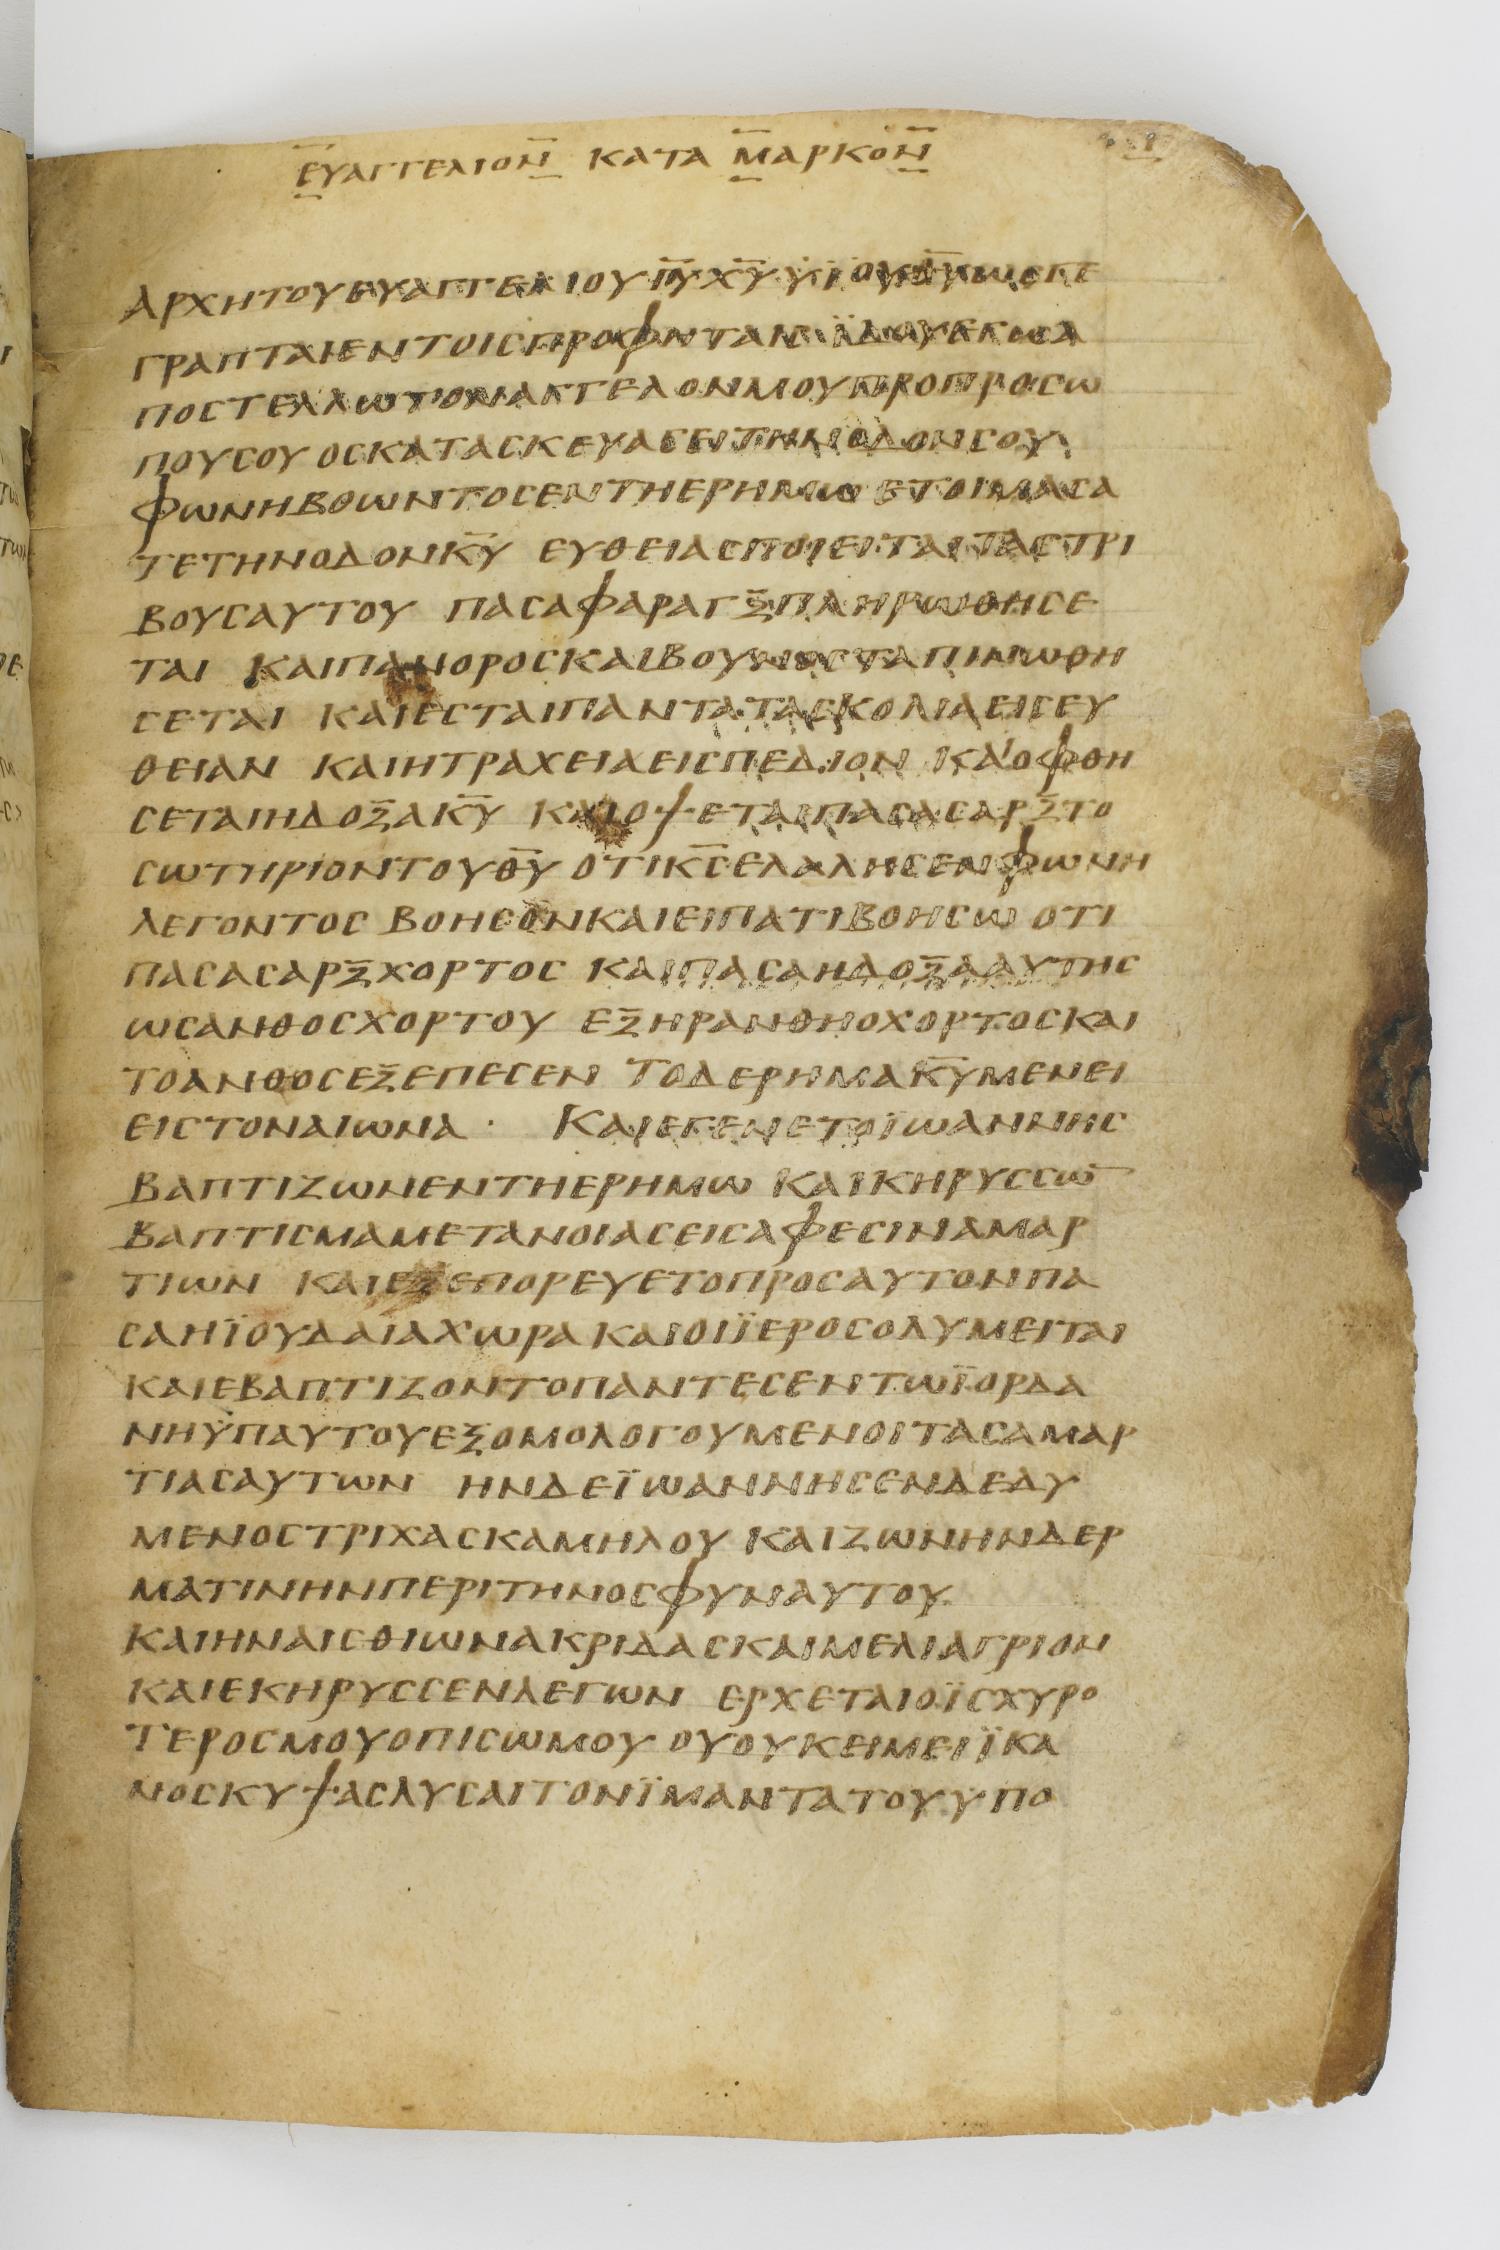 ΕΥΑΓΓΕΛΙΟΝ ΚΑΤΑ ΜΑΡΚΟΝ
ΑΡΧΗΤΟΥΕΥΑΓΓΕΛΙΟΥ ΙΥ ΧΥ ΥΪΟΥ
ΓΡΑΠΤΑΙΕΝΤΟΙΣΠΡΟΦΗΤΑΙΣ ΪΔΟΥΕΓΩΑ
ΠΟΣΤΕΛΛΩΤΟΝΑΓΓΕΛΟΝΜΟΥΠΡΟΠΡΟΣΩ
ΠΟΥΣΟΥ ΟΣΚΑΤΑΣΚΕΥΑΣΕΙΤΗΝΟΔΟΝΣΟΥ
ΦΩΝΗΒΟΩΝΤΟΣΕΝΤΗΕΡΗΜΩ ΕΤΟΙΜΑΣΑ
ΤΕΤΗΝΟΔΟΝΚΥ ΕΥΘΕΙΑΣΠΟΙΕΙΤΑΙΤΑΣΤΡΙ
ΒΟΥΣΑΥΤΟΥ ΠΑΣΑΦΑΡΑΓΞΠΛΗΡΩΘΗΣΕ
ΤΑΙ ΚΑΙΠΑΝΟΡΟΣΚΑΙΒΟΥΝΟΣΤΑΠΙΝΩΘΗ
ΣΕΤΑΙ ΚΑΙΕΣΤΑΙΠΑΝΤΑΤΑΣΚΟΛΙΑΕΙΣΕΥ
ΘΕΙΑΝ ΚΑΙΗΤΡΑΧΕΙΑΕΙΣΠΕΔΙΟΝ ΚΑΙΟΦΘΗ
ΣΕΤΑΙΗΔΟΞΑΚΥ ΚΑΙΟΨΕΤΑΙΠΑΣΑΣΑΡΞΤΟ
ΣΩΤΗΡΙΟΝΤΟΥΘΥ ΟΤΙΚΣΕΛΑΛΗΣΕΝΦΩΝΗ
ΛΕΓΟΝΤΟΣ ΒΟΗΣΟΝΚΑΙΕΙΠΑΤΙΒΟΗΣΩ ΟΤΙ
ΠΑΣΑΣΑΡΞΧΟΡΤΟΣ ΚΑΙΠΑΣΑΗΔΟΞΑΑΥΤΗΣ
ΩΣΑΝΘΟΣΧΟΡΤΟΥ ΕΞΗΡΑΝΘΗΟΧΟΡΤΟΣΚΑΙ
ΤΟΑΝΘΟΣΕΞΕΠΕΣΕΝ ΤΟΔΕΡΗΜΑΚΥΜΕΝΕΙ
ΕΙΣΤΟΝΑΙΩΝΑ · ΚΑΙΕΓΕΝΕΤΟΪΩΑΝΝΗΣ
ΒΑΠΤΙΖΩΝΕΝΤΗΕΡΗΜΩ ΚΑΙΚΗΡΥΣΣΩ̅
ΒΑΠΤΙΣΜΑΜΕΤΑΝΟΙΑΣΕΙΣΑΦΕΣΙΝΑΜΑΡ
ΤΙΩΝ ΚΑΙΕΞΕΠΟΡΕΥΕΤΟΠΡΟΣΑΥΤΟΝΠΑ
ΣΑΗΪΟΥΔΑΙΑΧΩΡΑΚΑΙΟΙΪΕΡΟΣΟΛΥΜΕΙΤΑΙ
ΚΑΙΕΒΑΠΤΙΖΟΝΤΟΠΑΝΤΕΣΕΝΤΩΪΟΡΔΑ
ΝΗΫΠΑΥΤΟΥΕΞΟΜΟΛΟΓΟΥΜΕΝΟΙΤΑΣΑΜΑΡ
ΤΙΑΣΑΥΤΩΝ ΗΝΔΕΪΩΑΝΝΗΣΕΝΔΕΔΥ
ΜΕΝΟΣΤΡΙΧΑΣΚΑΜΗΛΟΥ ΚΑΙΖΩΝΗΝΔΕΡ
ΜΑΤΙΝΗΝΠΕΡΙΤΗΝΟΣΦΥΝΑΥΤΟΥ
ΚΑΙΗΝΑΙΣΘΙΩΝΑΚΡΙΔΑΣΚΑΙΜΕΛΙΑΓΡΙΟΝ
ΚΑΙΕΚΗΡΥΣΣΕΝΛΕΓΩΝ ΕΡΧΕΤΑΙΟΪΣΧΥΡΟ
ΤΕΡΟΣΜΟΥΟΠΙΣΩΜΟΥ ΟΥΟΥΚΕΙΜΕΙΪΚΑ
ΝΟΣΚΥΨΑΣΛΥΣΑΙΤΟΝΪΜΑΝΤΑΤΟΥΥΠΟ